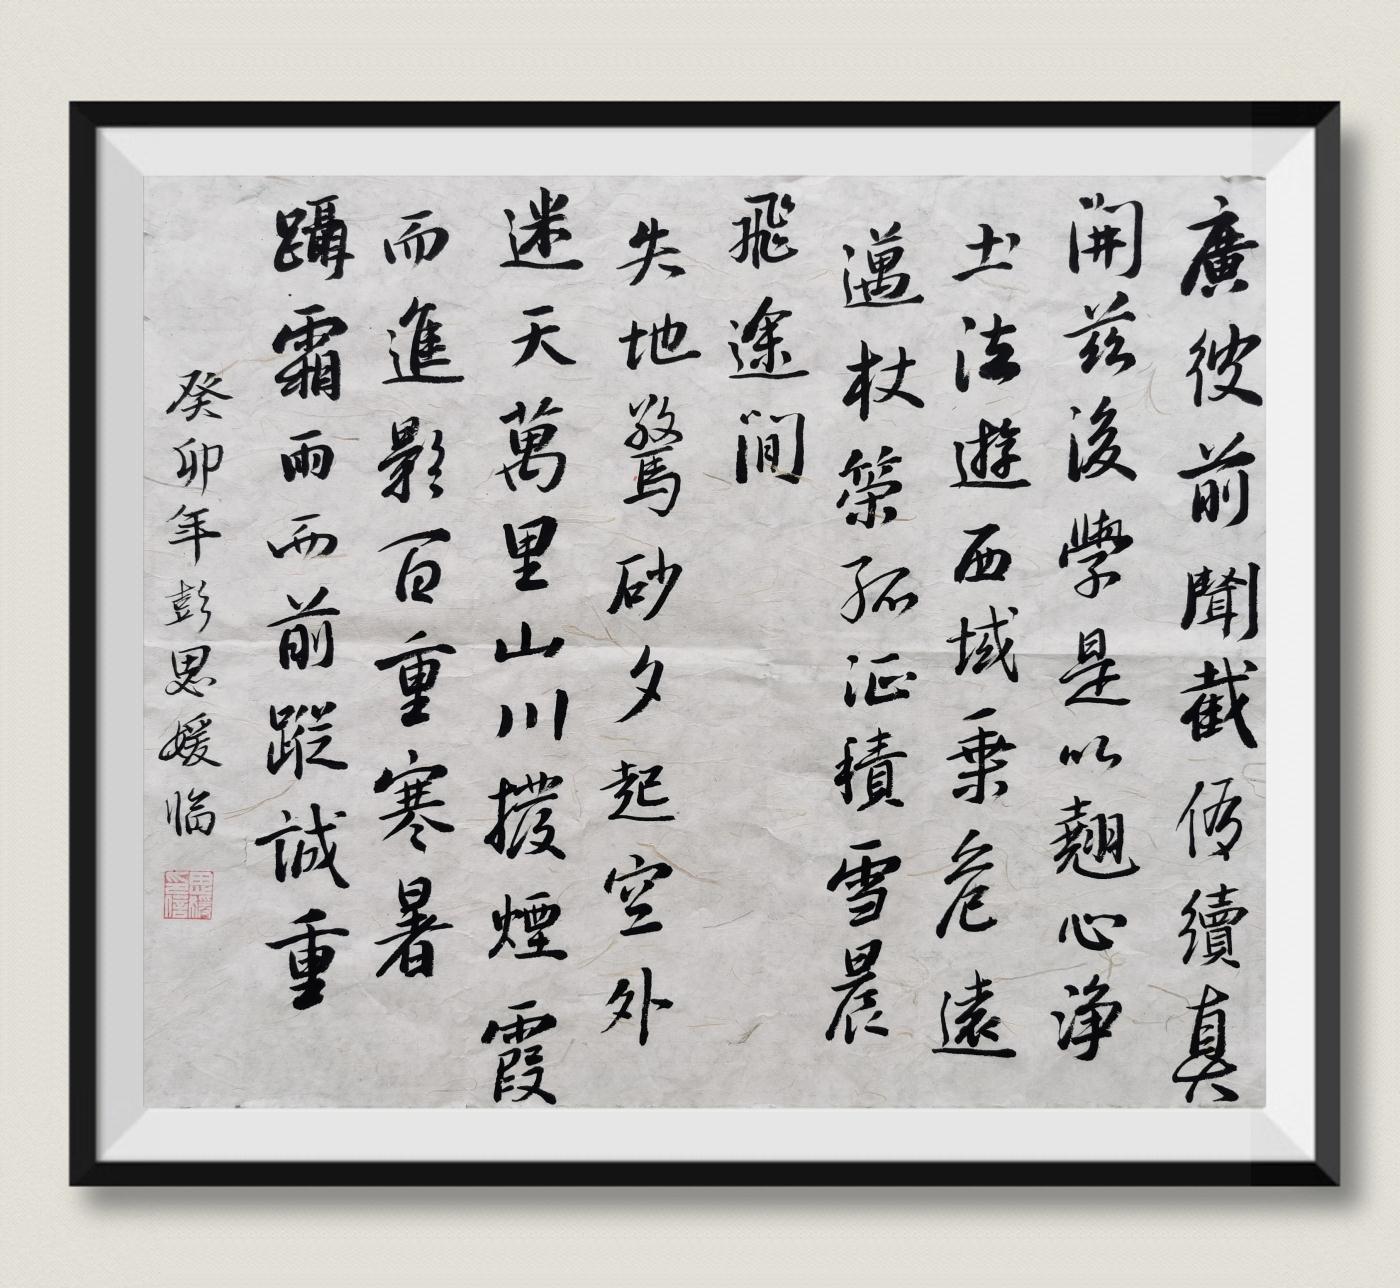 廣彼前聞截偽續真
開茲後學是以翹心淨
土法遊西域乗危遠
邁杖策孤征積雪晨
飛途間
失地驚砂夕起空外
迷天萬里山川撥煙霞
而進影百重寒暑
躡霜雨而前蹤誠重
癸卯年彭思媛臨